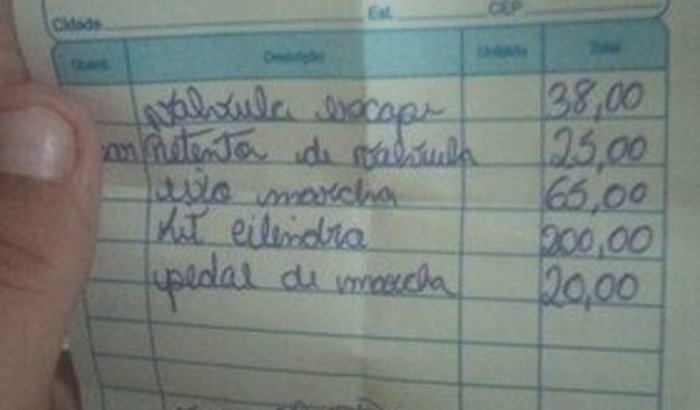 Cidade Est. CEP
Quant. Descrição Unitário Total
valvula escape 38,00
Retentor de valvula 25,00
eixo marcha 65,00
Kit cilindro 200,00
pedal de marcha 20,00